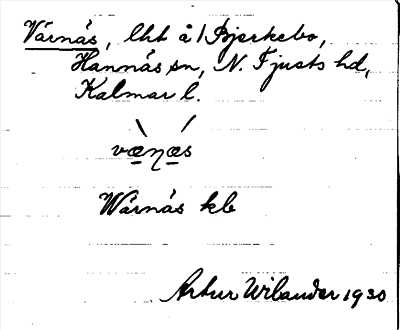 Värnäs, lht å 1 Bjerkebo,
Hannäs sn, N. Tjusts hd,
Kalmar l.
væṇæs
Wärnäs kb
Artur Wilander 1930